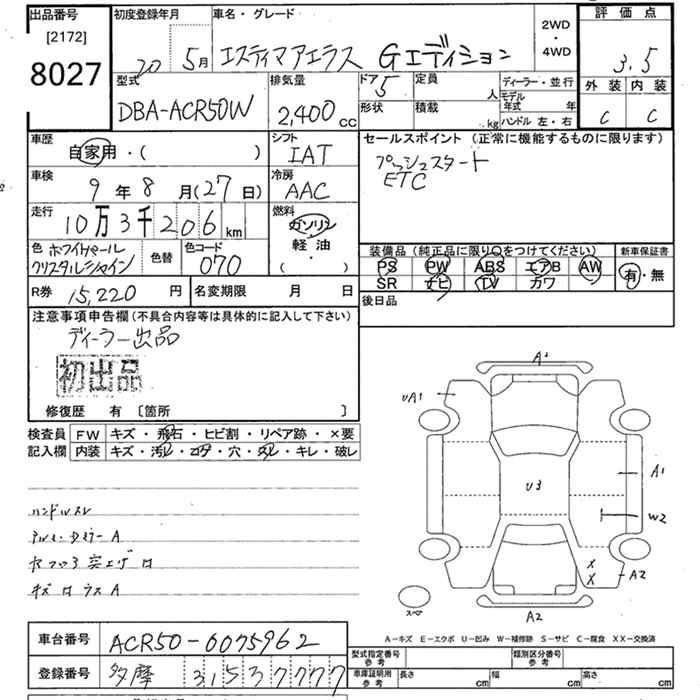 出品番号
[2172]
8027
初度登録年月
20 5月
車名・グレード
エスティマアエラス Gエディション
2WD
・
4WD
評価点
3.5
外装 内装
C C
型式
DBA-ACR50W
排気量
2,400 cc
ドア 5
定員 人
形状
積載 kg
ディーラー・並行
モデル年式 年
ハンドル 左・右
車歴
自家用・( )
シフト
IAT
車検
9年8月(27日)
冷房
AAC
走行
10万3千206km
燃料
ガソリン
軽油
・
( )
色 ホワイトパール
クリスタルシャイン
色替
色コード
070
R券 15,220円
名変期限 月 日
セールスポイント (正常に機能するものに限ります)
プッシュスタート
ETC
装備品(純正品に限り○をつけてください)
PS PW ABS エアB AW
SR ナビ TV カワ
新車保証書
有・無
後日品
注意事項申告欄(不具合内容等は具体的に記入して下さい)
ディーラー出品
初出品
修復歴 有 〔箇所 〕
検査員
記入欄
FW キズ・飛石・ヒビ割・リペア跡・×要
内装 キズ・汚レ・コゲ・穴・スレ・キレ・破レ
ハンドルスレ
キズ
A1
UA1
A1
U3
W2
X
X
A2
A2
スペア
A-キズ E-エクボ U-凹み W-補修跡 S-サビ C-腐食 XX-交換済
車台番号 ACR50-0075962
登録番号 多摩 31537777
型式指定番号
参考
類別区分番号
参考
車庫証明用
参考
長さ cm 幅 cm 高さ cm